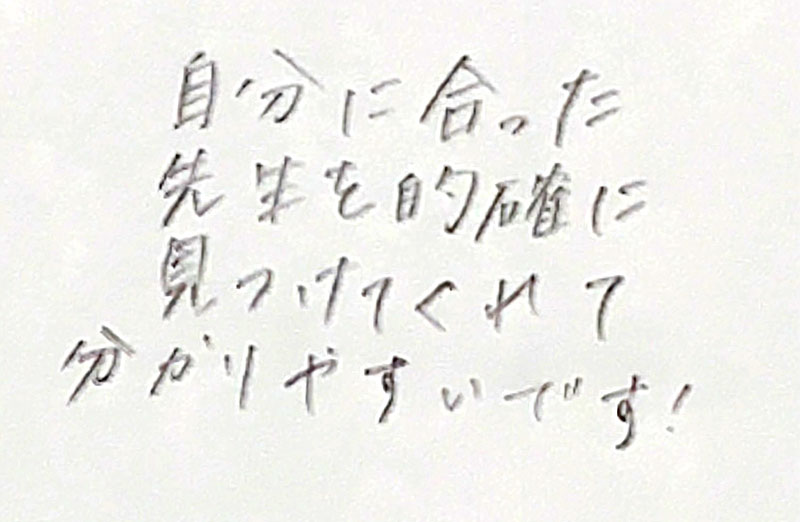 自分に合った
先生を的確に
見つけてくれて
分かりやすいです!